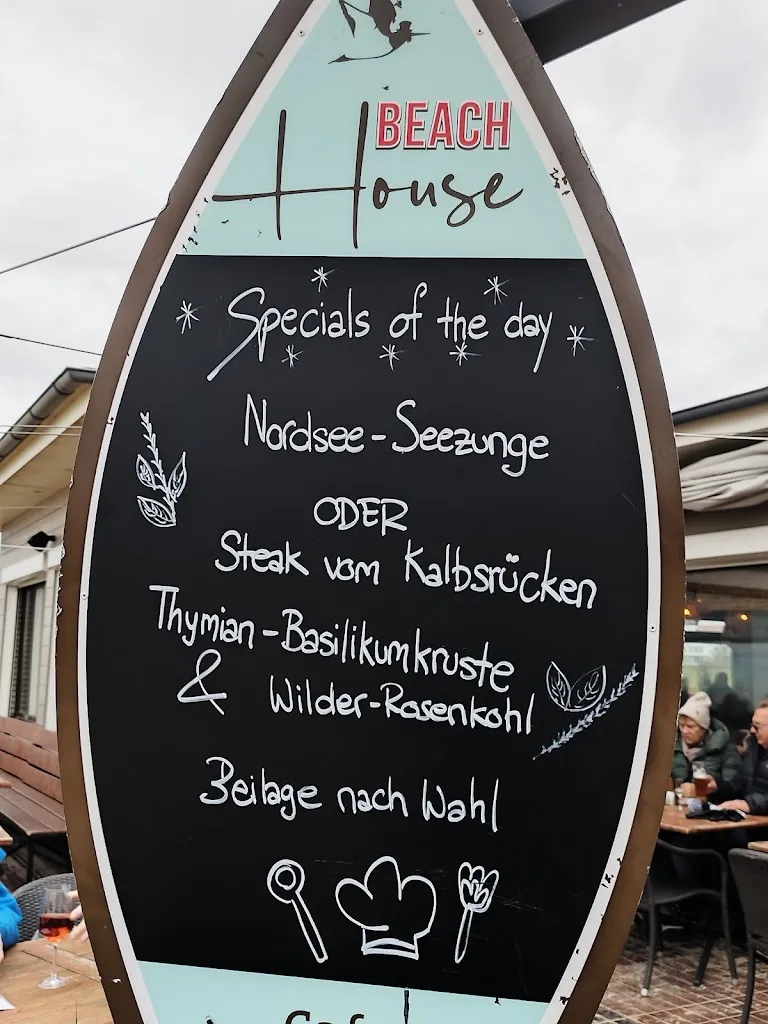 BEACH
House
Specials of the day
Nordsee-Seezunge
ODER
Steak vom Kalbsrücken
Thymian-Basilikumkruste
& Wilder-Rosenkohl
Beilage nach Wahl